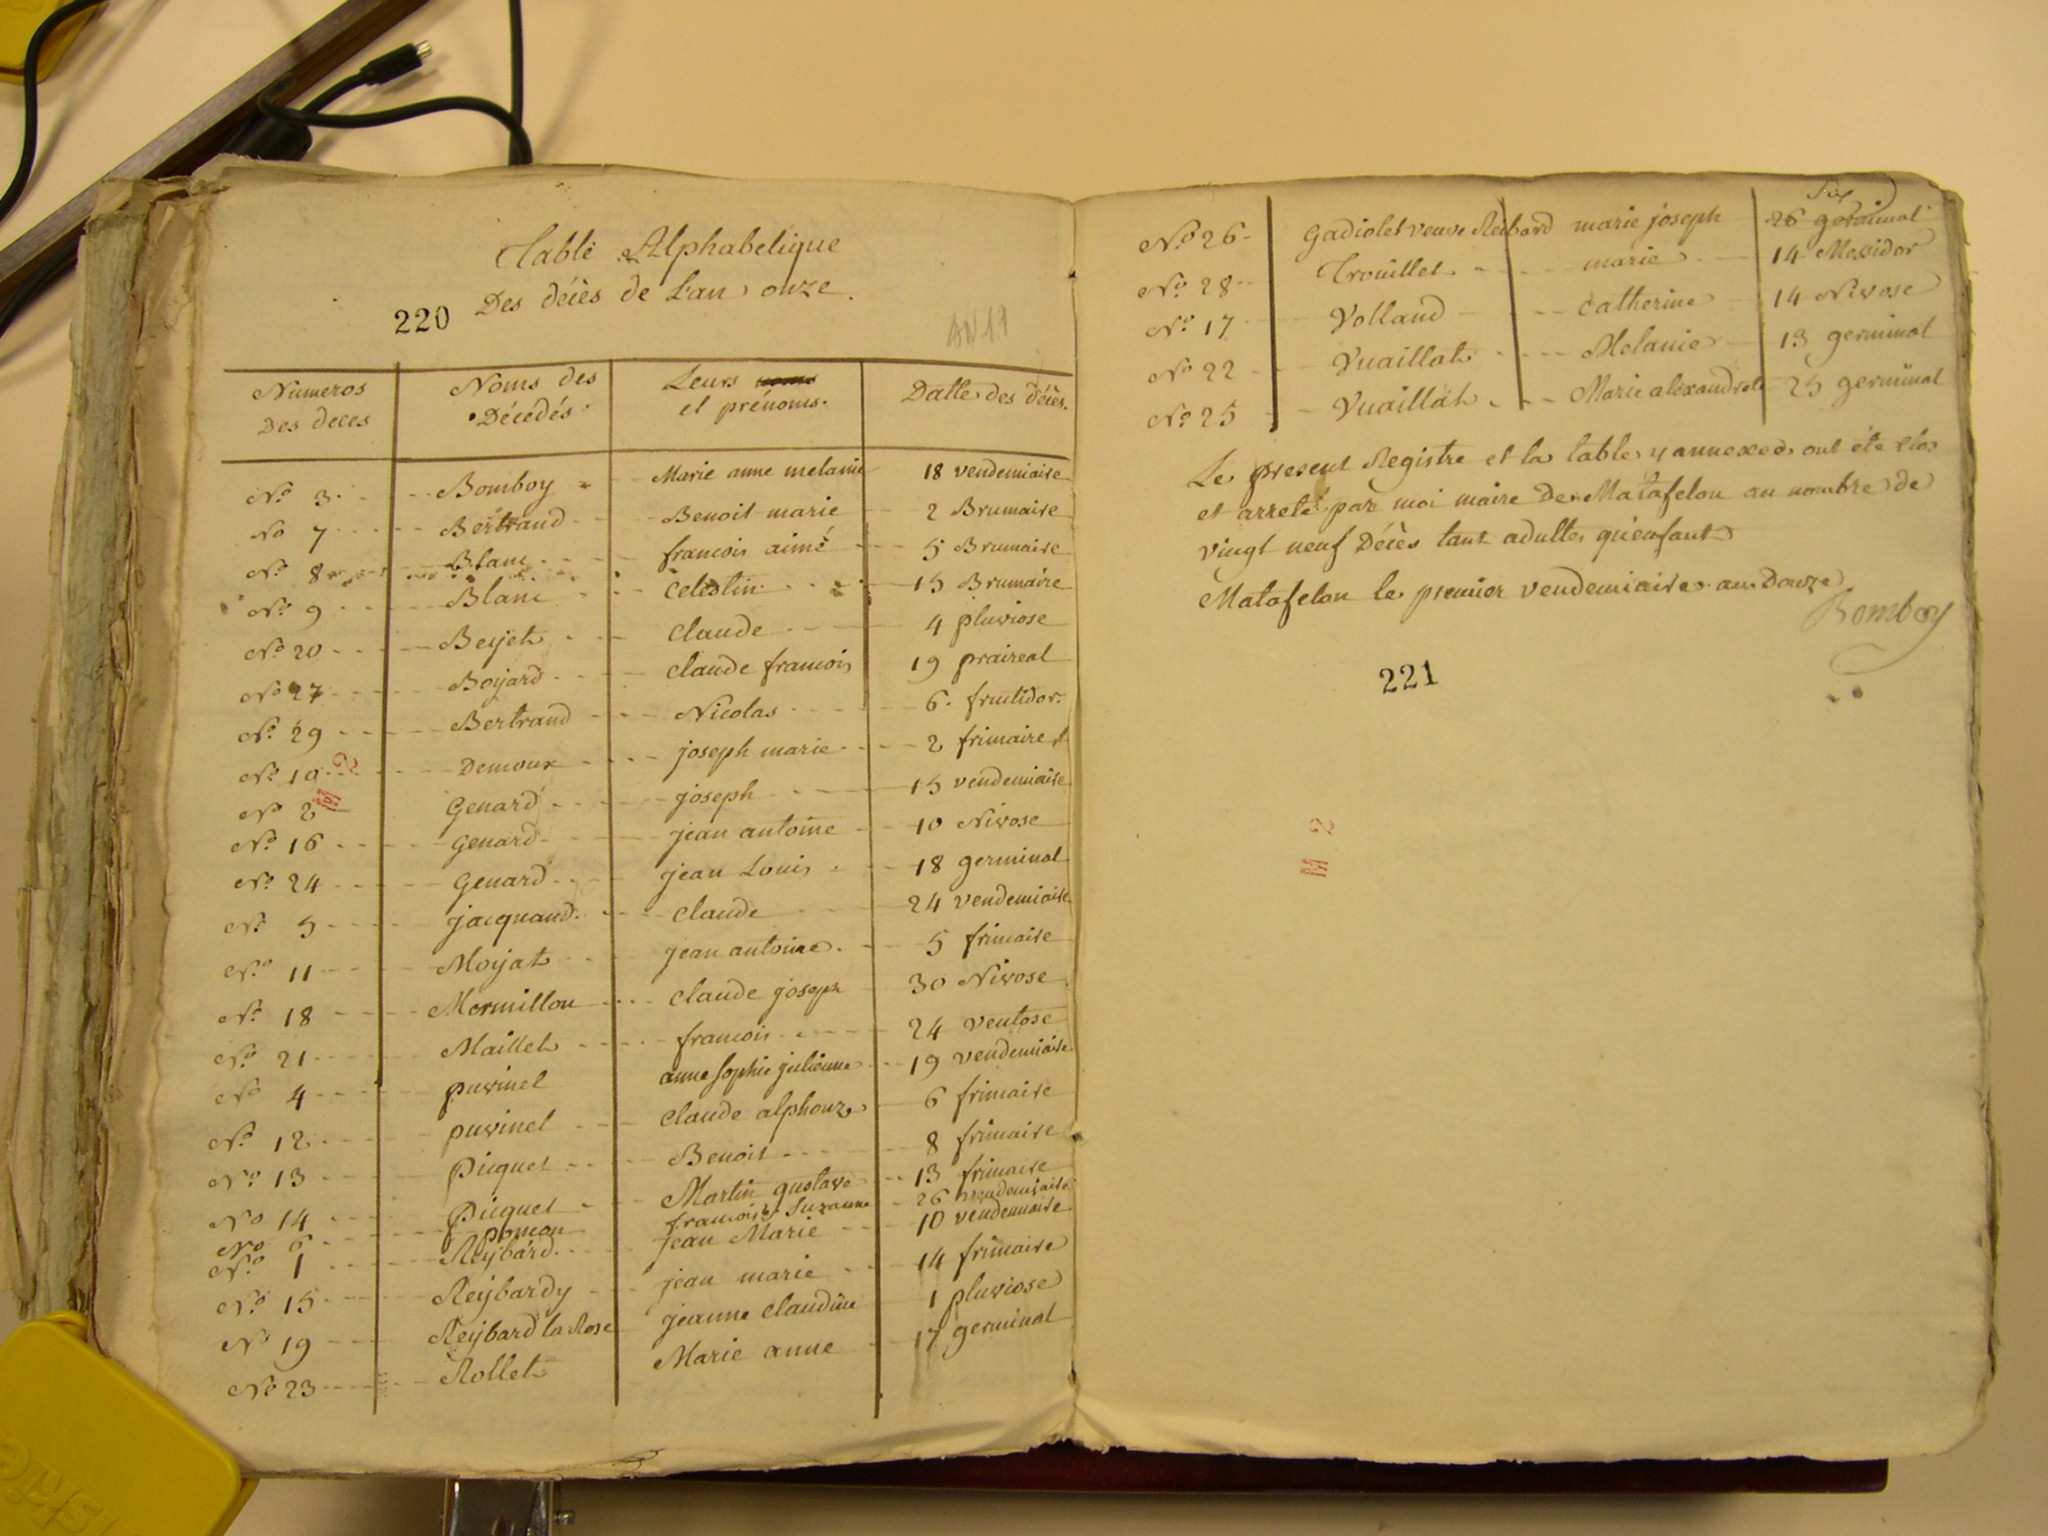 Table Alphabetique
Des décès de L'an onze.
220
an 11
Numeros Des deces | Noms des Décedés | Leurs noms et prénoms. | Datte des décès.
No. 3 Bomboy Marie anne melanie 18 vendemiaire
No 7 Bertrand Benoit marie 2 Brumaire
No. 8 Blanc francois aimé 5 Brumaire
No. 9 Blanc Celestin 15 Brumaire
No. 20 Beyjet Claude 4 pluviose
No 27 Boÿard Claude francois 19 praireal
No. 29 Bertrand Nicolas 6. fruitidor
No. 10 Demoux joseph marie 2 frimaire
No 2 Genard joseph 15 vendemiaire
No. 16 Genard jean antoine 10 Nivose
No. 24 Genard jean Louis 18 germinal
No. 5 jacquand Claude 24 vendemiaire
No. 11 Moÿat jean antoine 5 frimaire
No. 18 Mermillon Claude joseph 30 Nivose
No. 21 Maillet francois 24 ventose
No 4 puvinel anne sophie julienne 19 vendemiaire
No. 12 puvinel Claude alphonze 6 frimaire
No 13 Picquet Benoit 8 frimaire
No 14 Picquet Martin gustave 13 frimaire
No 6 poncon francoise Suzanne 26 vendemiaire
No. 1 Reÿbard jean Marie 10 vendemiaire
No. 15 Reÿbardy jean marie 14 frimaire
No 19 Reÿbard la Rose jeanne Claudine 1 pluviose
No 23 Rollet Marie anne 17 germinal
No. 26 Gadiolet veuve Reibard marie joseph 26 germinal
No. 28 Trouillet marie 14 Messidor
No. 17 Volland Catherine 14 Nivose
No 22 Vuaillat Melanie 13 germinal
No. 25 Vuaillat Marie alexandrete 25 germinal
Le present Registre et la table y annexée ont été clos
et arreté par moi maire De Matafelon au nombre de
vingt neuf Décès tant adultes qu'enfant
Matafelon le premier vendemiaire an Douze
Bomboy
221